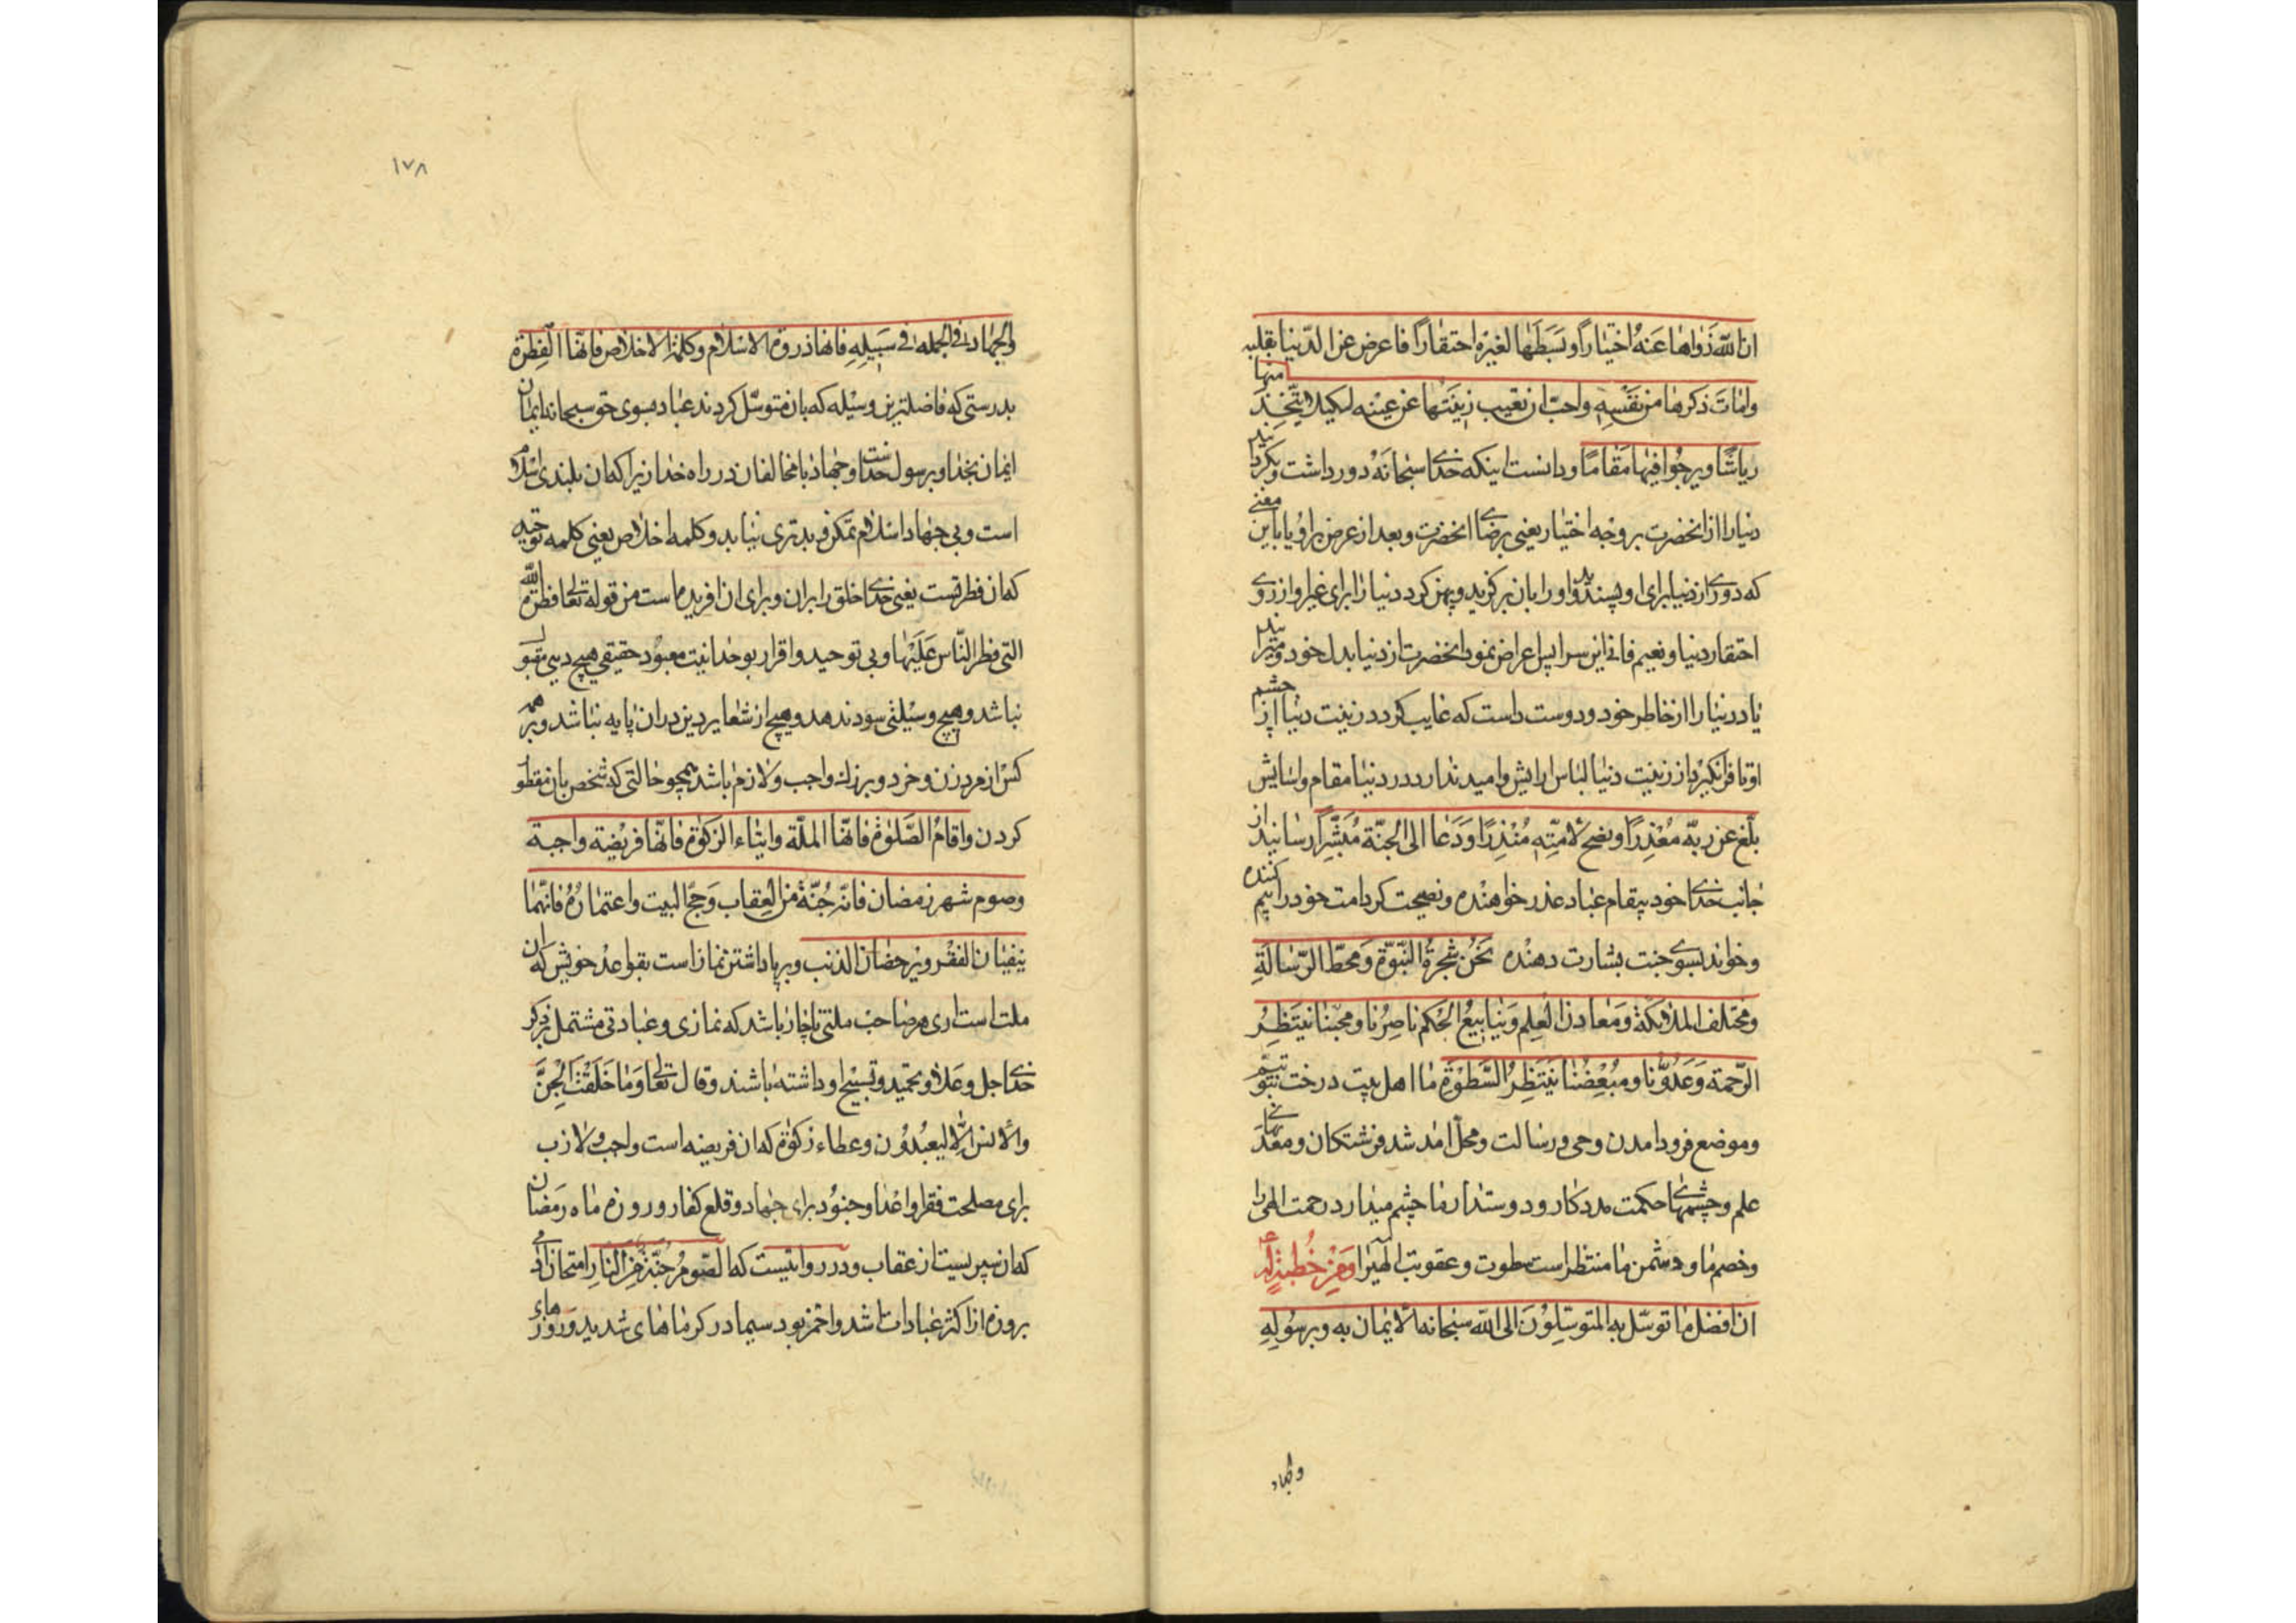 ان الله زواها عنه اختیارا و بسطها لغیره احتقارا فاعرض عن الدنیا بقلبه
و امات ذکرها من نفسه و احب ان تغیب زینتها عن عینه لکیلا یتخذ منها
ریاشا و یرجوا فیها مقاما و دانست اینکه خدای سبحانه دور داشت و بکردانید
دنیا را از انحضرت بر وجه اختیار یعنی برضای انحضرت و بعد از عرض براو یا باین معنی
که دوری از دنیا برای او پسندید و او را بان برکزید و پهن کرد دنیا را برای غیر او از روی
احتقار دنیا و نعیم فانی این سرا پس اعراض نمود انحضرت از دنیا بدل خود و میرانید
یاد دنیا را از خاطر خود و دوست داست که غایب کردد زینت دنیا از چشم
او تا فرانکیرد از زینت دنیا لباس ارایش و امید ندارد در دنیا مقام و اسایش
بلغ عن ربه معذرا و نصح لامته منذرا و دعا الی الجنة مبشرا رسانید از
جانب خدای خود پیقام عباد عذر خواهنده و نصیحت کرد امت خود را بیم کننده
و خواند بسوی جنت بشارت دهنده نحن شجرة النبوة و محط الرسالة
و مختلف الملائکة و معادن العلم و ینابیع الحکم ناصرنا و محبنا ینتظر
الرحمة و عدونا و مبغضنا ینتظر السطوة ما اهل بیت درخت نبوتیم
و موضع فرود امدن وحی و رسالت و محل امد شد فرشتکان و معدنهای
علم و چشمهای حکمت مددکار و دوستدار ما چشم میدارد رحمت الهی را
و خصم ما و دشمن ما منتظر است سطوت و عقوبت الهی را و من خطبة له ع
ان افضل ما توسل به المتوسلون الی الله سبحانه الایمان به و برسوله
و الجهاد
۱۷۸
و الجهاد فی الجمله فی سبیله فانها ذروة الاسلام و کلمة الاخلاص فانها الفطرة
بدرستی که فاضلترین وسیله که بان متوسل کردند عباد بسوی حق سبحانه ایمان
ایمان بخدا و برسول خداست و جهاد با مخالفان در راه خدا زیرا که ان بلندی اسلام
است و بی جهاد اسلام تمکن و برتری نیابد و کلمه اخلاص یعنی کلمه توحید
که ان فطرتست یعنی خدای خلق را بران و برای ان افریده است من قوله تعالی فطرة الله
التی فطر الناس علیها و بی توحید و اقرار بوحدانیت معبود حقیقی هیچ دینی مقبول
نباشد و هیچ وسیلتی سود ندهد و هیچ از شعایر دین دران پایه نباشد و بر همه
کس از مرد و زن و خرد و بزرک واجب و لازم باشد همچو حالتی که شخص بان مفطور
کردن و اقام الصلوة فانها الملة و ایتاء الزکوة فانها فریضة واجبة
و صوم شهر رمضان فانه جنة من العقاب و حج البیت و اعتماره فانهما
ینفیان الفقر و یرحضان الذنب و برپا داشتن نماز است بقواعد خویش که ان
ملت است اری هر صاحب ملتی ناچار باشد که نمازی و عبادتی مشتمل بر ذکر
خدای جل و علا و تحمید و تسبیح او داشته باشند و قال تعالی و ما خلقت الجن
و الانس الا لیعبدون و عطاء زکوة که ان فریضه است واجب و لازب
برای مصلحت فقرا و اغنیا و جنود برای جهاد و قلع کفار و روزه ماه رمضان
که ان سپریست از عقاب و در روایتیست که الصوم جنة من النار امتحان ادمی
بروزه از اکثر عبادات اشد و احمز بود سیما در کرماهای شدید و روزهای